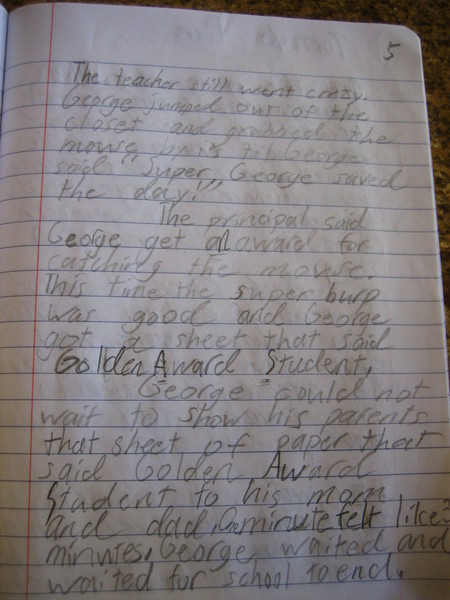 5
The teacher still went crazy.
George jumped out of the
closet and grabbed the
mouse by it George
said "Super George saved
the day!"
The principal said
George get an award for
catching the mouse.
This time the super burp
was good and George
got a sheet that said
Golden Award Student,
George could not
wait to show his parents
that sheet of paper that
said Golden Award
Student to his mom
and dad. One minute felt like
minutes, George waited and
waited for school to end.